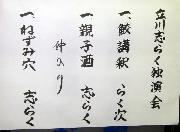 立川志らく独演会
一、鮫講釈 らく次
一、親子酒 志らく
仲入り
一、ねずみ穴 志らく